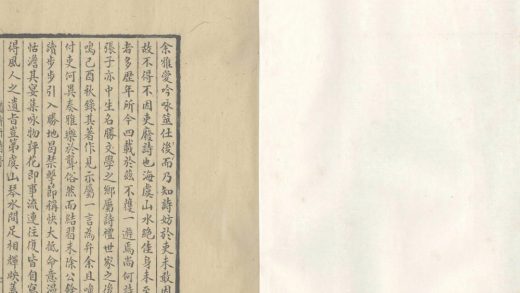 余雅愛吟詠筮仕後而乃知詩妨於吏未敢因
故不得不因吏廢詩也海虞山水絶佳身未至
者多歴年所今四載於兹不獲一遊焉尚何詩
張子亦中生名勝文學之鄉屬詩禮世家之後
鳴己酉秋録其著作見示屬一言爲弁余且嘆
付吏何異奏雅樂於聾俗然而結習未除公餘
讀步步引入勝地曷禁擊節稱快大抵命意温
恬澹其宴集咏物評花即事流連往復皆自寫
得風人之遺旨豈第虞山琴水間足相輝映